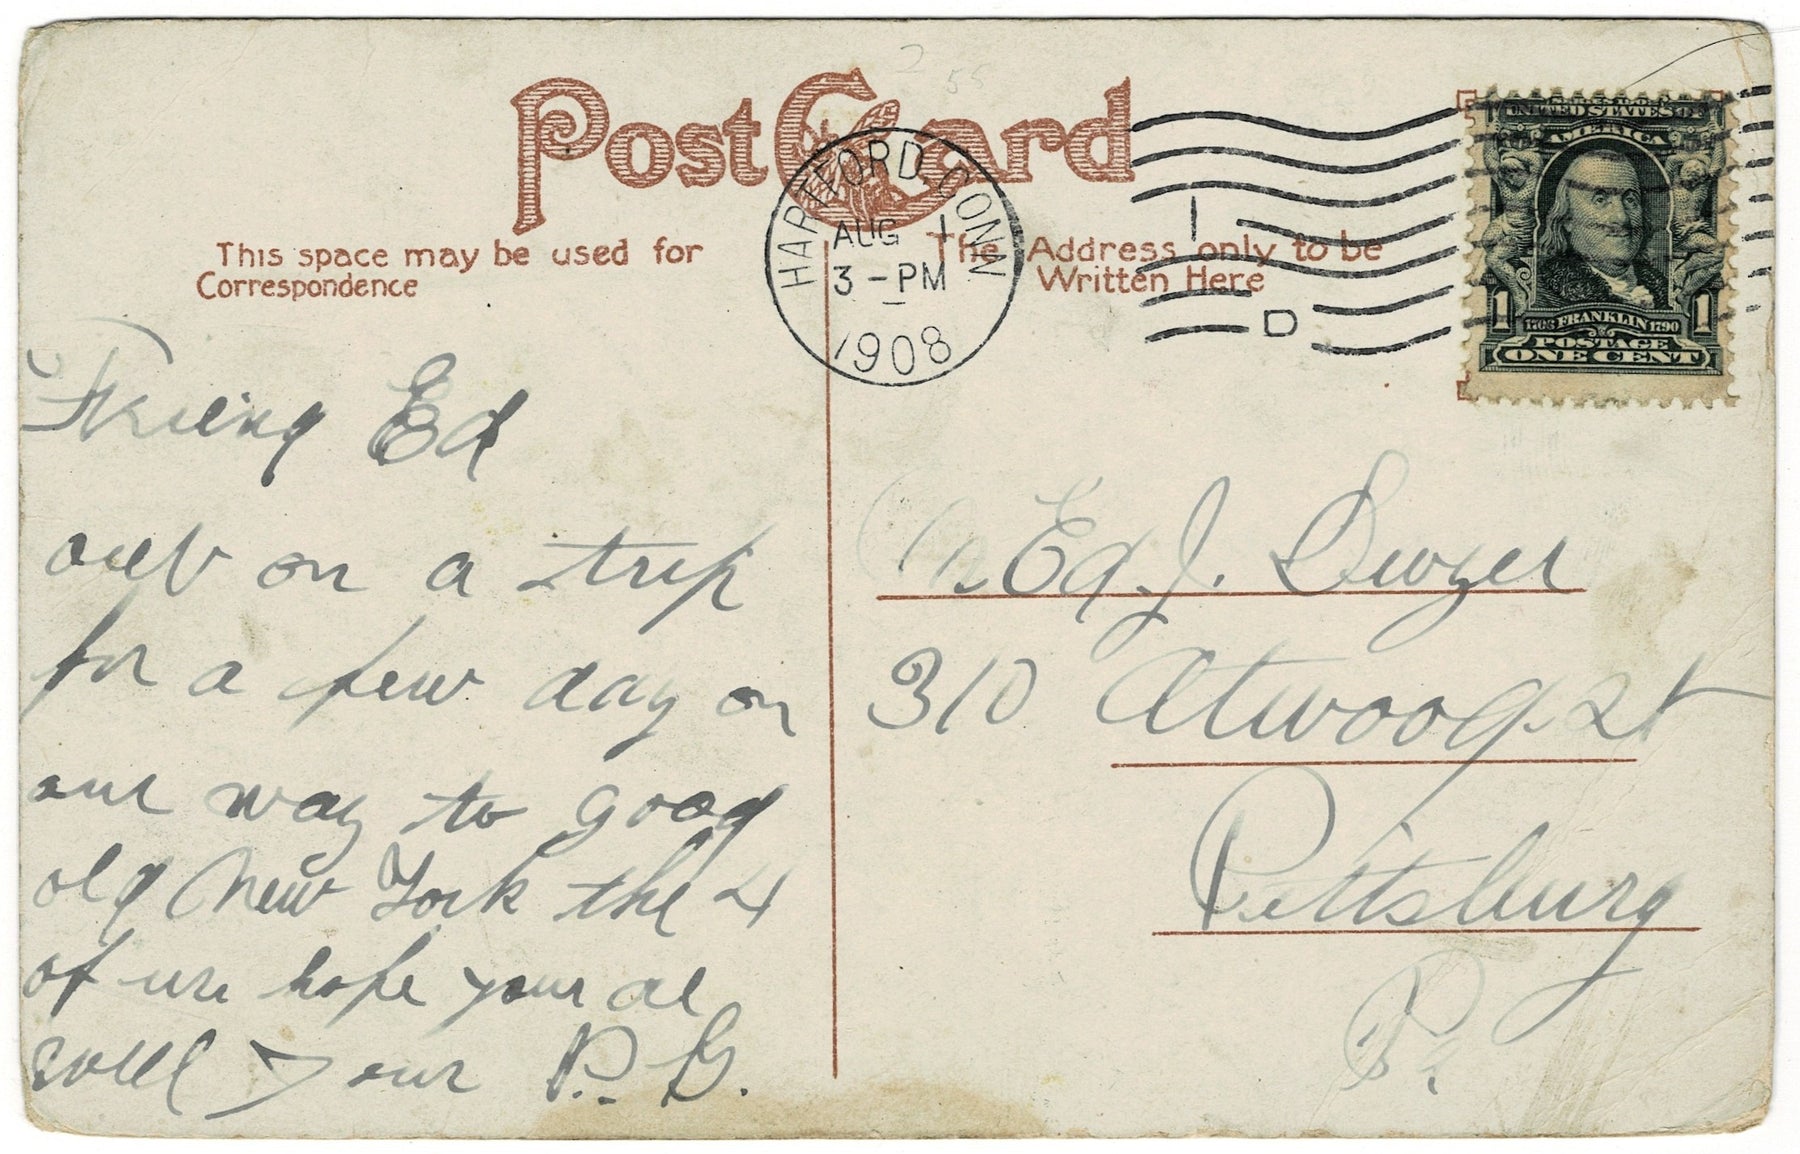 Post Card
This space may be used for
Correspondence
The Address only to be
Written Here
HARTFORD, CONN.
AUG 1
3 - PM
1908
1
D
UNITED STATES OF
AMERICA
1 1
1706 FRANKLIN 1790
POSTAGE
ONE CENT
Friend Ed
out on a trip
for a few day on
our way to good
old New York the 4
of us hope your al
well Your P. G.
Mr Ed J. Dwyer
310 Atwood St
Pittsburg
Pa